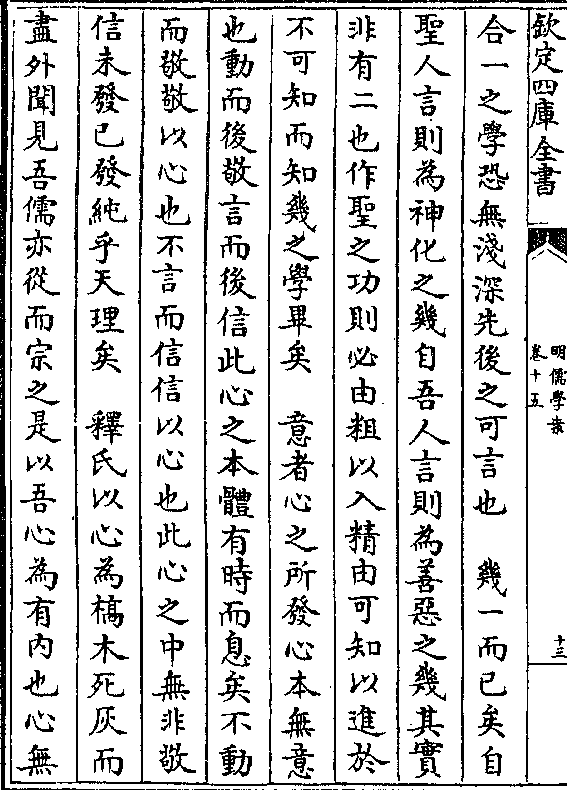 欽定四庫全書
明儒學案
卷十五
十三
合一之學恐無淺深先後之可言也　幾一而已矣自
聖人言則為神化之幾自吾人言則為善惡之幾其實
非有二也作聖之功則必由粗以入精由可知以進於
不可知而知幾之學畢矣　意者心之所發心本無意
也動而後敬言而後信此心之本體有時而息矣不動
而敬敬以心也不言而信信以心也此心之中無非敬
信未發已發純乎天理矣　釋氏以心為槁木死灰而
盡外聞見吾儒亦從而宗之是以吾心為有内也心無